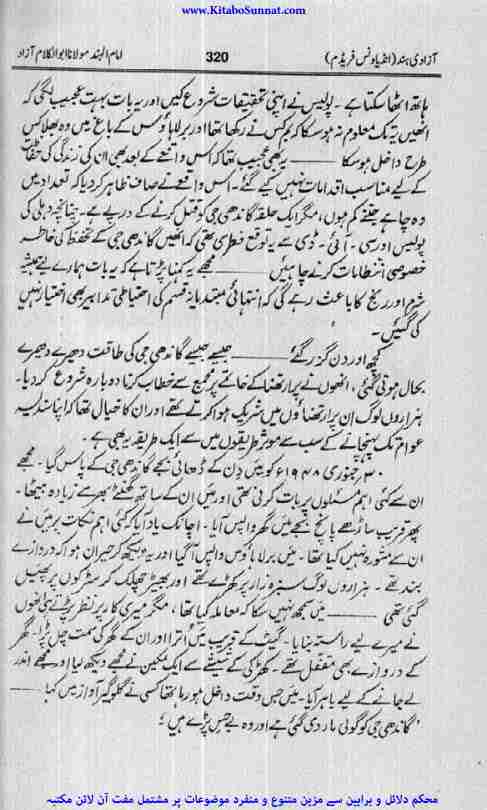 www.KitaboSunnat.com
آزادی ہند (انڈیا ونس فریڈم)
320
امام الہند مولانا ابوالکلام آزاد
ہاتھ اٹھا سکتا ہے۔ پولیس نے اپنی تحقیقات شروع کیں اور یہ بات بہت عجیب لگی کہ
انھیں یہ تک معلوم نہ ہو سکا کہ بم کس نے رکھا تھا اور برلا ہاؤس کے باغ میں وہ بھلا کس
طرح داخل ہو سکا ——— یہ بھی عجیب تھا کہ اس واقعے کے بعد بھی ان کی زندگی کی حفاظت
کے لیے مناسب اقدامات نہیں کیے گئے۔ اس واقعے نے صاف ظاہر کر دیا کہ تعداد میں
وہ چاہے جتنے کم ہوں، مگر ایک حلقہ گاندھی جی کو قتل کرنے کے درپے ہے۔ چنانچہ دہلی کی
پولیس اور سی۔ آئی۔ ڈی سے یہ توقع فطری تھی کہ انھیں گاندھی جی کے تحفظ کی خاطر
خصوصی انتظامات کرنے چاہئیں ——— مجھے یہ کہنا پڑتا ہے کہ یہ بات ہمارے لیے ہمیشہ
شرم اور رنج کا باعث رہے گی کہ انتہائی مبتدیانہ قسم کی احتیاطی تدابیر بھی اختیار نہیں
کی گئیں۔
کچھ اور دن گزر گئے ——— جیسے جیسے گاندھی جی کی طاقت دھیرے دھیرے
بحال ہوتی گئی، انھوں نے پرارتھنا کے خاتمے پر مجمع سے خطاب کرنا دوبارہ شروع کر دیا۔
ہزاروں لوگ ان پرارتھناؤں میں شریک ہوا کرتے تھے اور ان کا خیال تھا کہ اپنا سندیسہ
عوام تک پہنچانے کے سب سے موثر طریقوں میں سے ایک طریقہ یہ بھی ہے۔
۳۰ جنوری ۱۹۴۸ء کو میں دن کے ڈھائی بجے گاندھی جی کے پاس گیا۔ مجھے
ان سے کئی اہم مسئلوں پر بات کرنی تھی اور میں ان کے ساتھ گھنٹے بھر سے زیادہ بیٹھا۔
پھر قریب ساڑھے پانچ بجے میں گھر واپس آیا۔ اچانک یاد آیا کہ کئی اہم نکات پر میں نے
ان سے مشورہ نہیں کیا تھا۔ میں برلا ہاؤس واپس آ گیا اور یہ دیکھ کر حیران ہوا کہ دروازے
بند تھے۔ ہزاروں لوگ سبزہ زار پر کھڑے تھے اور بھیڑ چھلک کر سڑکوں پر پھیل
گئی تھی ——— میں سمجھ نہیں سکا کہ معاملہ کیا تھا، مگر میری کار پر نظر پڑتے ہی انھوں
نے میرے لیے راستہ بنایا۔ گیٹ کے قریب میں اُترا اور ان کے گھر کی سمت چل پڑا۔ گھر
کے دروازے بھی مقفل تھے۔ کھڑکی کے شیشے سے ایک مکین نے مجھے دیکھ لیا اور مجھے اندر
لے جانے کے لیے باہر آیا۔ میں جس وقت داخل ہو رہا تھا کسی نے گلوگیر آواز میں کہا ———
"گاندھی جی کو گولی مار دی گئی ہے اور وہ بے حِس پڑے ہیں"
محکم دلائل و براہین سے مزین متنوع و منفرد موضوعات پر مشتمل مفت آن لائن مکتبہ